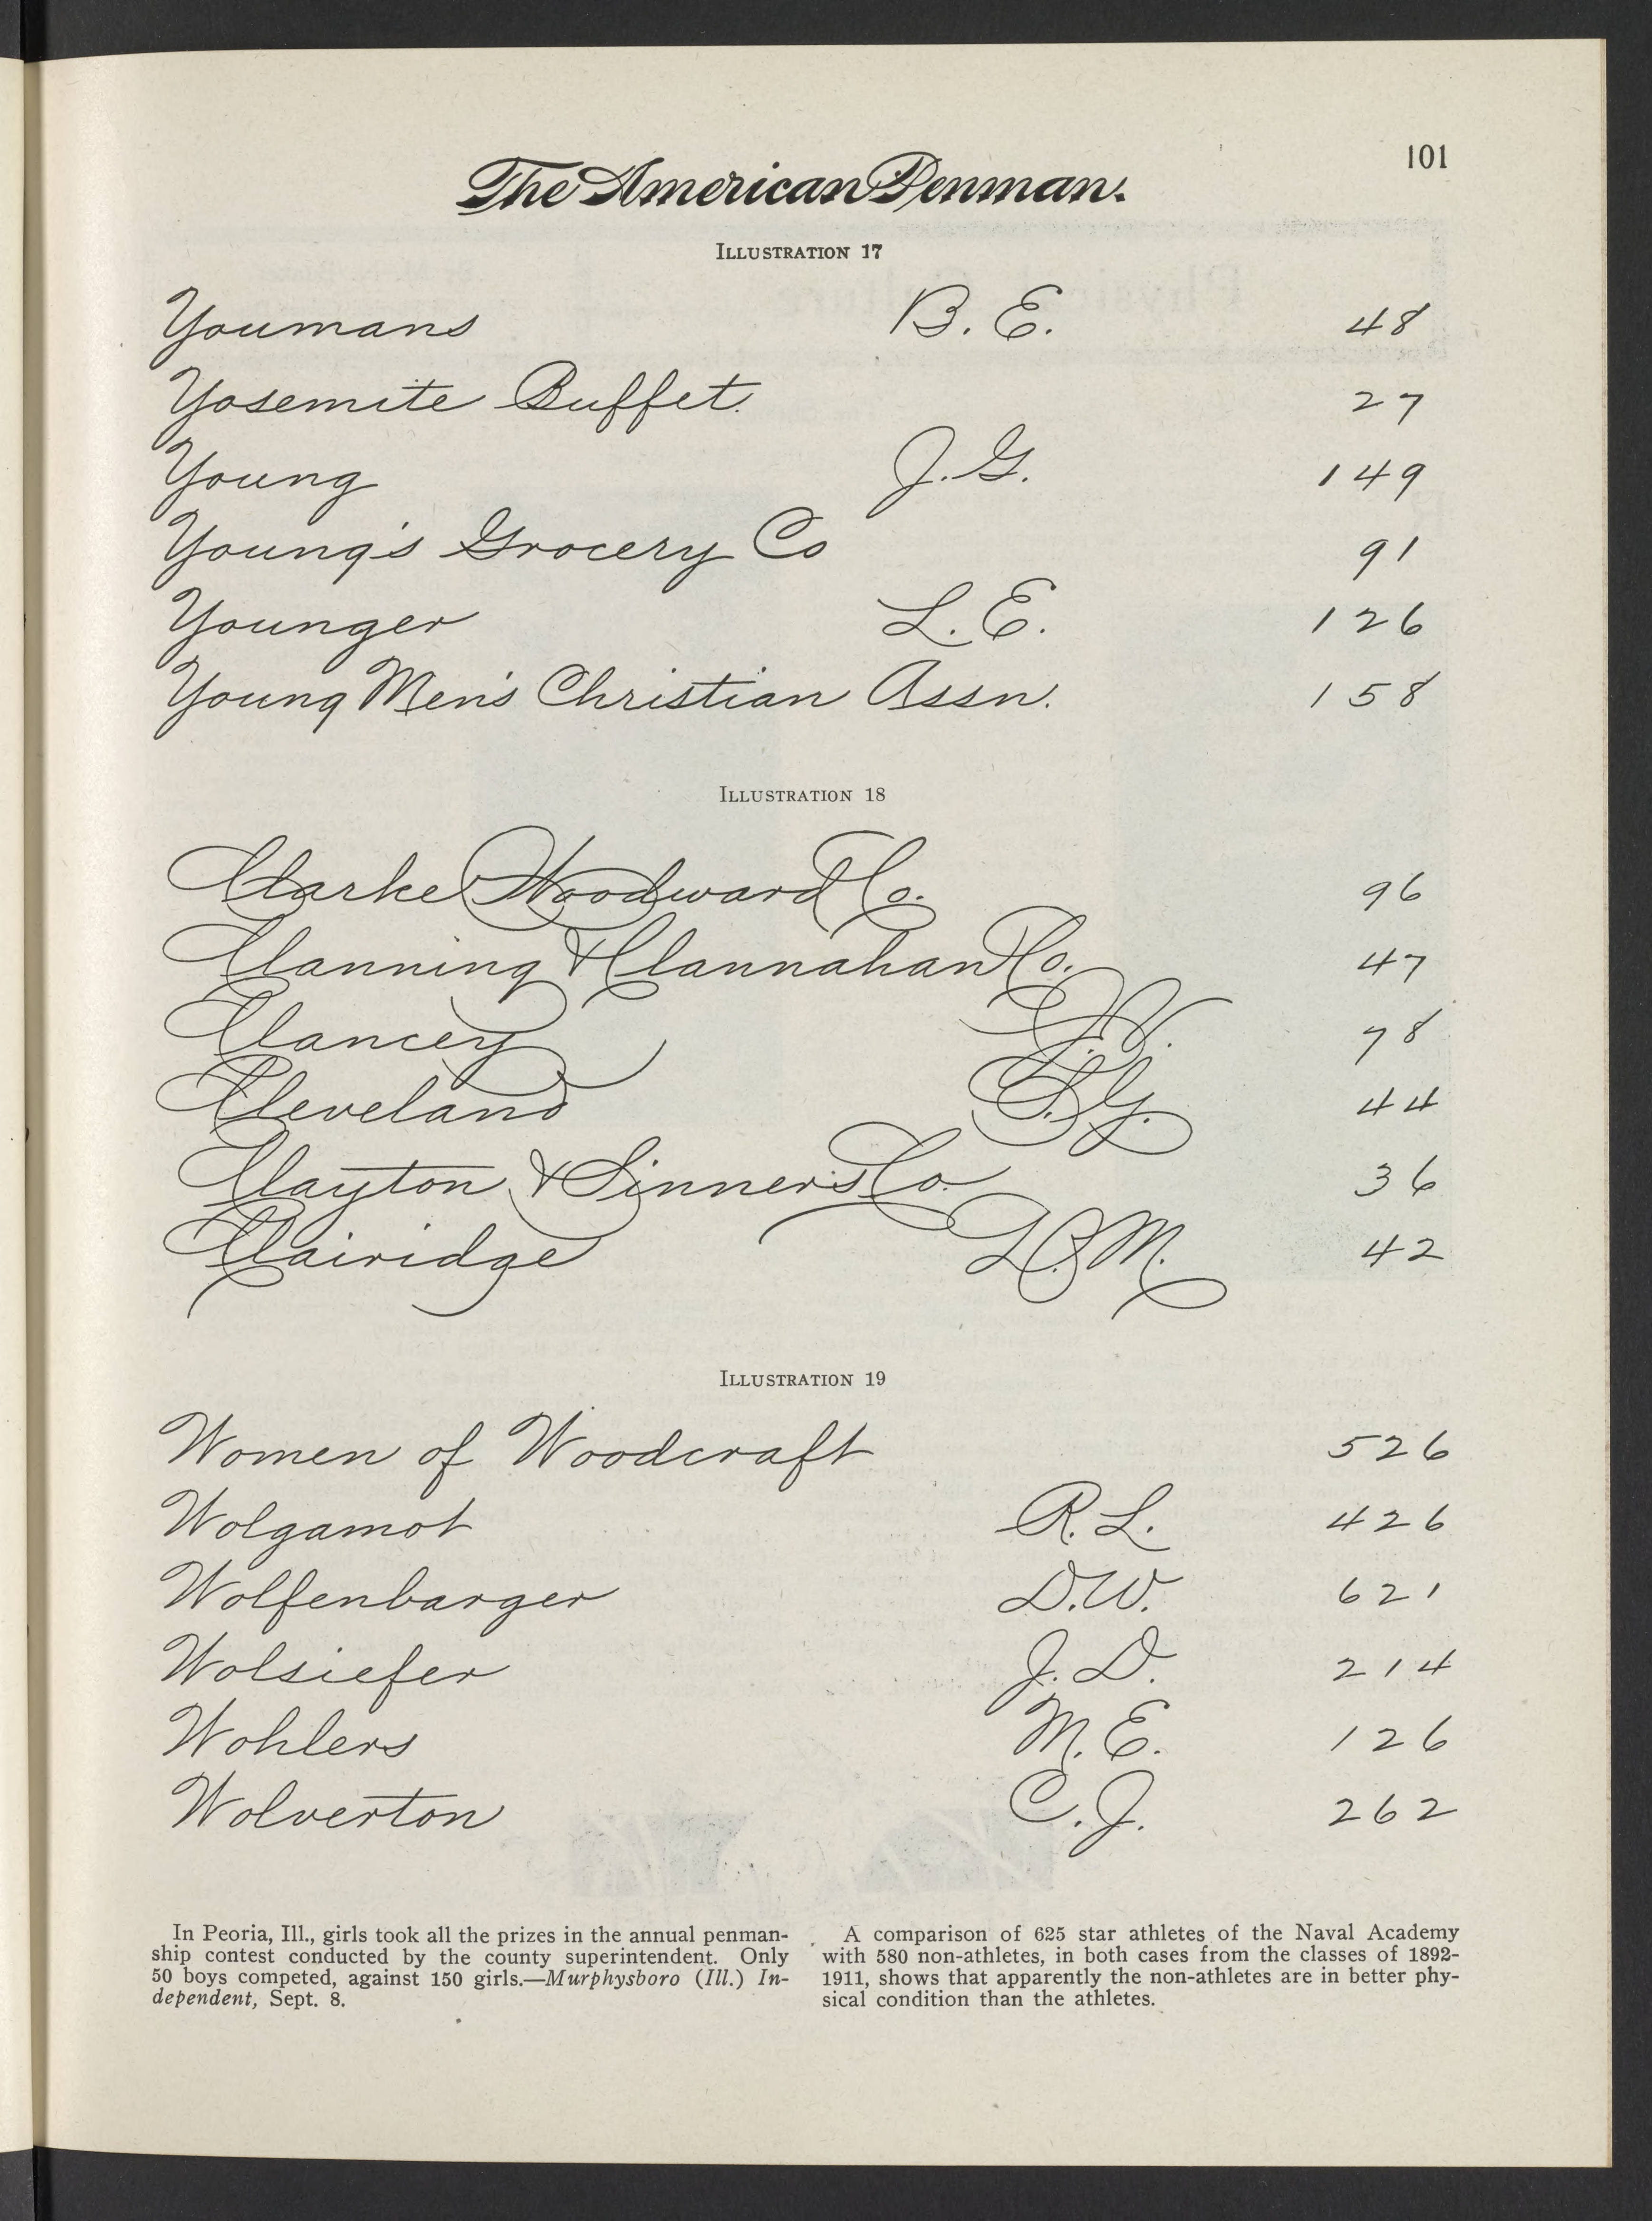 101
The American Penman.
ILLUSTRATION 17
Youmans B. E. 48
Yosemite Buffet. 27
Young J. G. 149
Young's Grocery Co 91
Younger L. E. 126
Young Men's Christian Assn. 158
ILLUSTRATION 18
Clarke Woodward Co. 96
Clanning & Clannahan Co. 47
Clancey 78
Cleveland 44
Clayton & Sinners Co. 36
Clairidge M. 42
ILLUSTRATION 19
Women of Woodcraft 526
Wolgamot R. L. 426
Wolfenbarger D. W. 621
Wolsiefer J. D. 214
Wohlers M. E. 126
Wolverton C. J. 262
In Peoria, Ill., girls took all the prizes in the annual penman-
ship contest conducted by the county superintendent. Only
50 boys competed, against 150 girls.—Murphysboro (Ill.) In-
dependent, Sept. 8.
A comparison of 625 star athletes of the Naval Academy
with 580 non-athletes, in both cases from the classes of 1892-
1911, shows that apparently the non-athletes are in better phy-
sical condition than the athletes.